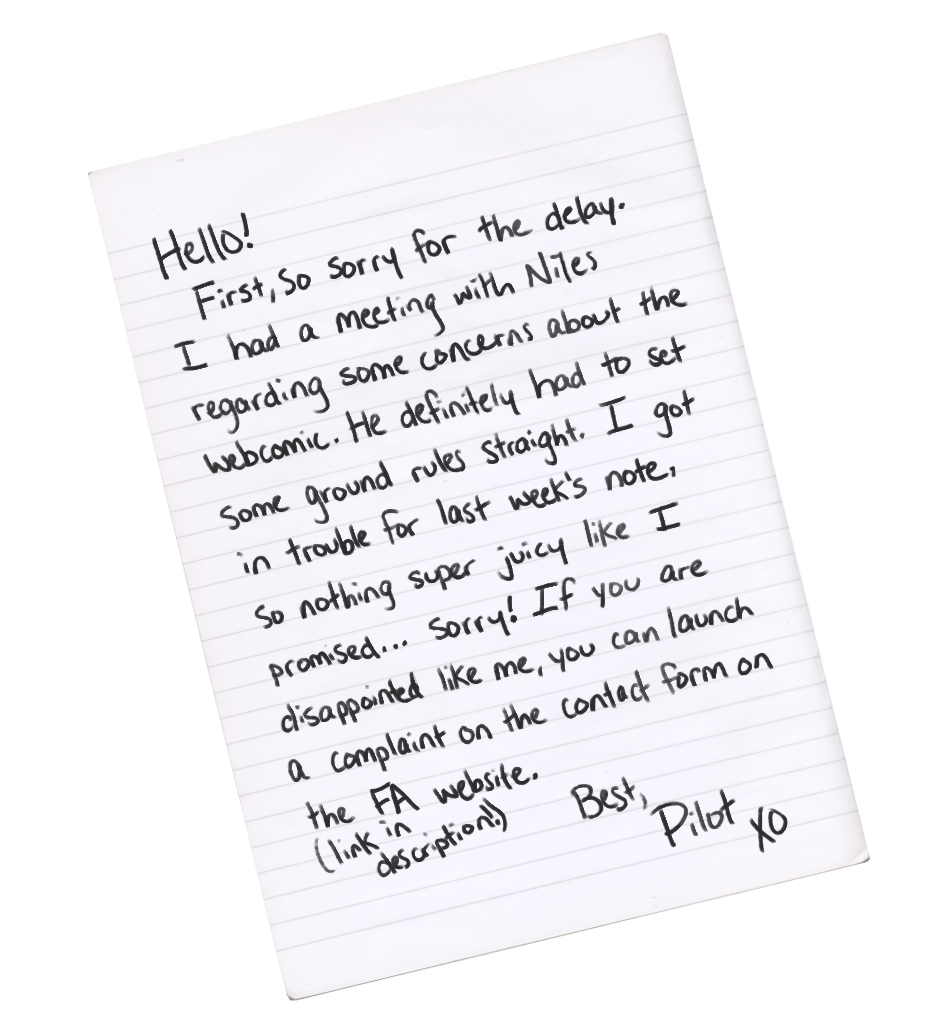 Hello!
First, so sorry for the delay.
I had a meeting with Niles
regarding some concerns about the
webcomic. He definitely had to set
some ground rules straight. I got
in trouble for last week's note,
so nothing super juicy like I
promised... Sorry! If you are
disappointed like me, you can launch
a complaint on the contact form on
the FA website.
(link in
description!)
Best,
Pilot XO